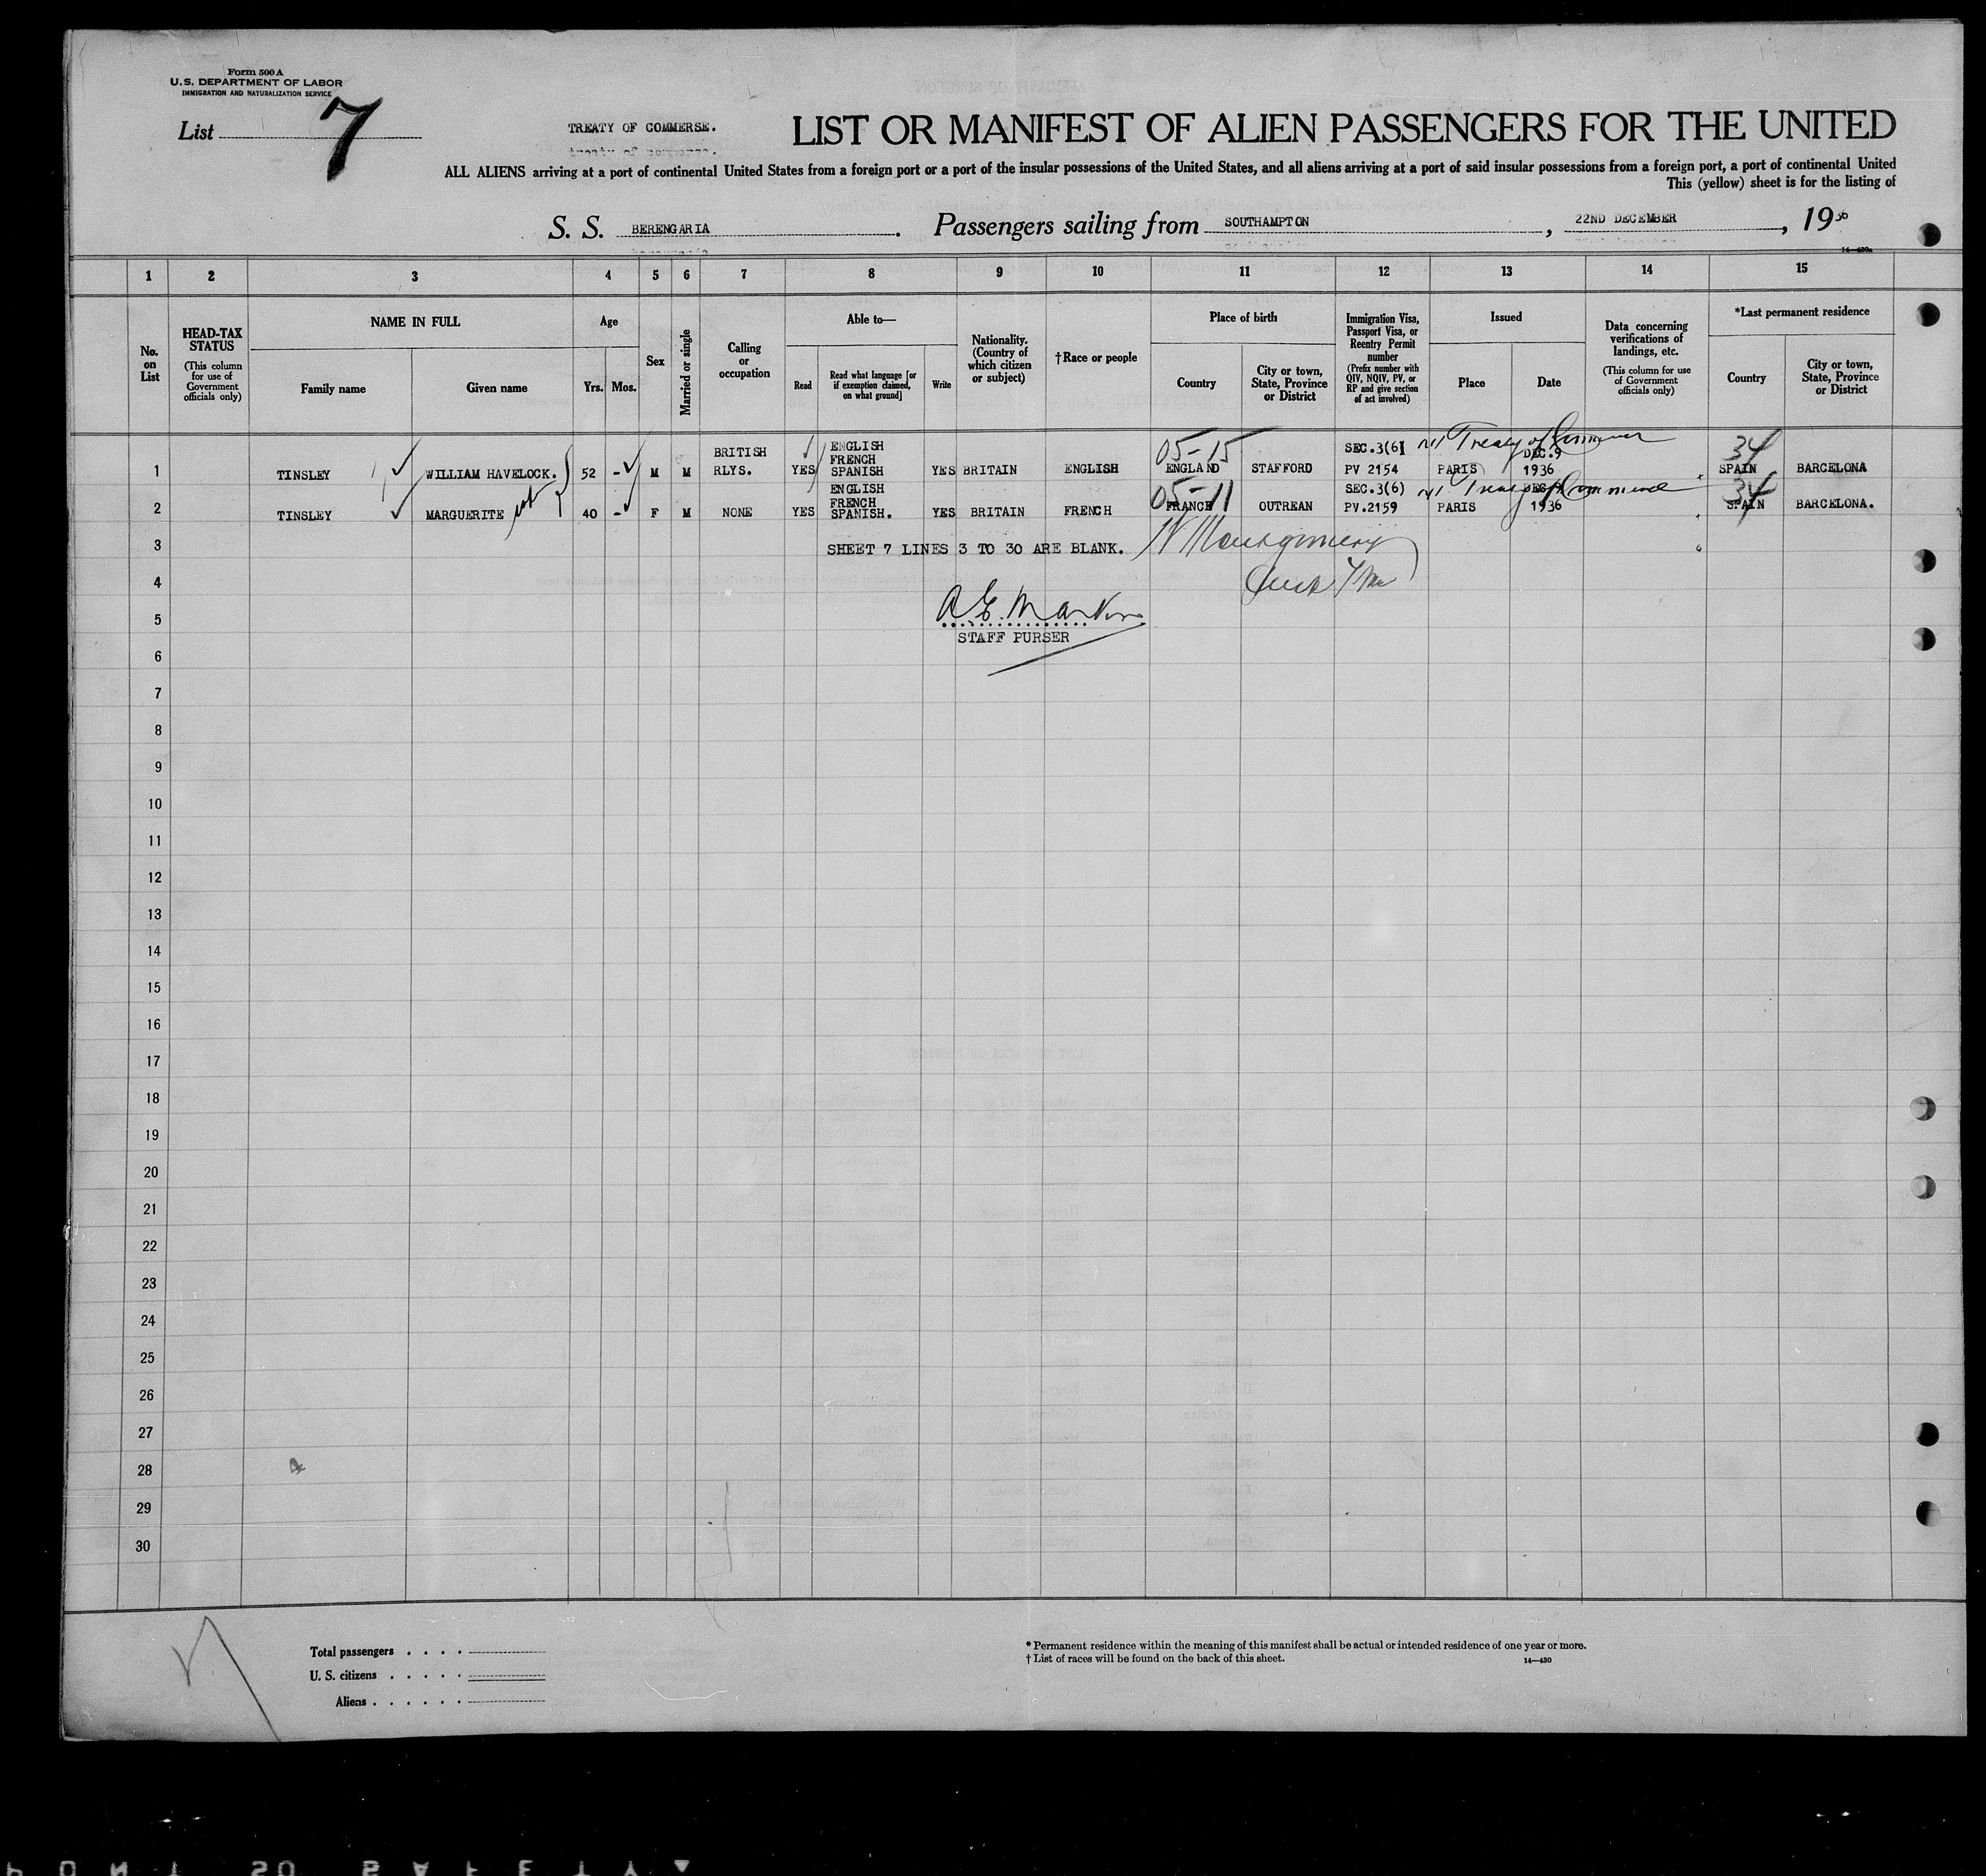 Form 500 A
U.S. DEPARTMENT OF LABOR
IMMIGRATION AND NATURALIZATION SERVICE
List 7
TREATY OF COMMERSE.
LIST OR MANIFEST OF ALIEN PASSENGERS FOR THE UNITED
ALL ALIENS arriving at a port of continental United States from a foreign port or a port of the insular possessions of the United States, and all aliens arriving at a port of said insular possessions from a foreign port, a port of continental United
This (yellow) sheet is for the listing of
S. S. BERENGARIA . Passengers sailing from SOUTHAMPTON , 22ND DECEMBER , 19 36
1 2 3 4 5 6 7 8 9 10 11 12 13 14 15
No. on List
HEAD-TAX STATUS (This column for use of Government officials only)
NAME IN FULL
Family name
Given name
Age
Yrs. Mos.
Sex
Married or single
Calling or occupation
Able to—
Read
Read what language [or if exemption claimed, on what ground]
Write
Nationality. (Country of which citizen or subject)
†Race or people
Place of birth
Country
City or town, State, Province or District
Immigration Visa, Passport Visa, or Reentry Permit number (Prefix number with QIV, NQIV, PV, or RP and give section of act involved)
Issued
Place
Date
Data concerning verifications of landings, etc. (This column for use of Government officials only)
*Last permanent residence
Country
City or town, State, Province or District
05-15 Treaty of Commerce 34
1 TINSLEY WILLIAM HAVELOCK. 52 - M M BRITISH RLYS. YES ENGLISH FRENCH SPANISH YES BRITAIN ENGLISH ENGLAND STAFFORD SEC.3(6) PV 2154 PARIS DEC.9 1936 SPAIN BARCELONA
05-11 Treaty of Commerce 34
2 TINSLEY MARGUERITE 40 - F M NONE YES ENGLISH FRENCH SPANISH. YES BRITAIN FRENCH FRANCE OUTREAN SEC.3(6) PV.2159 PARIS 1936 SPAIN BARCELONA.
3 SHEET 7 LINES 3 TO 30 ARE BLANK. Montgomery
4
5
STAFF PURSER
6
7
8
9
10
11
12
13
14
15
16
17
18
19
20
21
22
23
24
25
26
27
28 4
29
30
Total passengers . . . .
U. S. citizens . . . . .
Aliens . . . . . .
* Permanent residence within the meaning of this manifest shall be actual or intended residence of one year or more.
† List of races will be found on the back of this sheet. 14—430